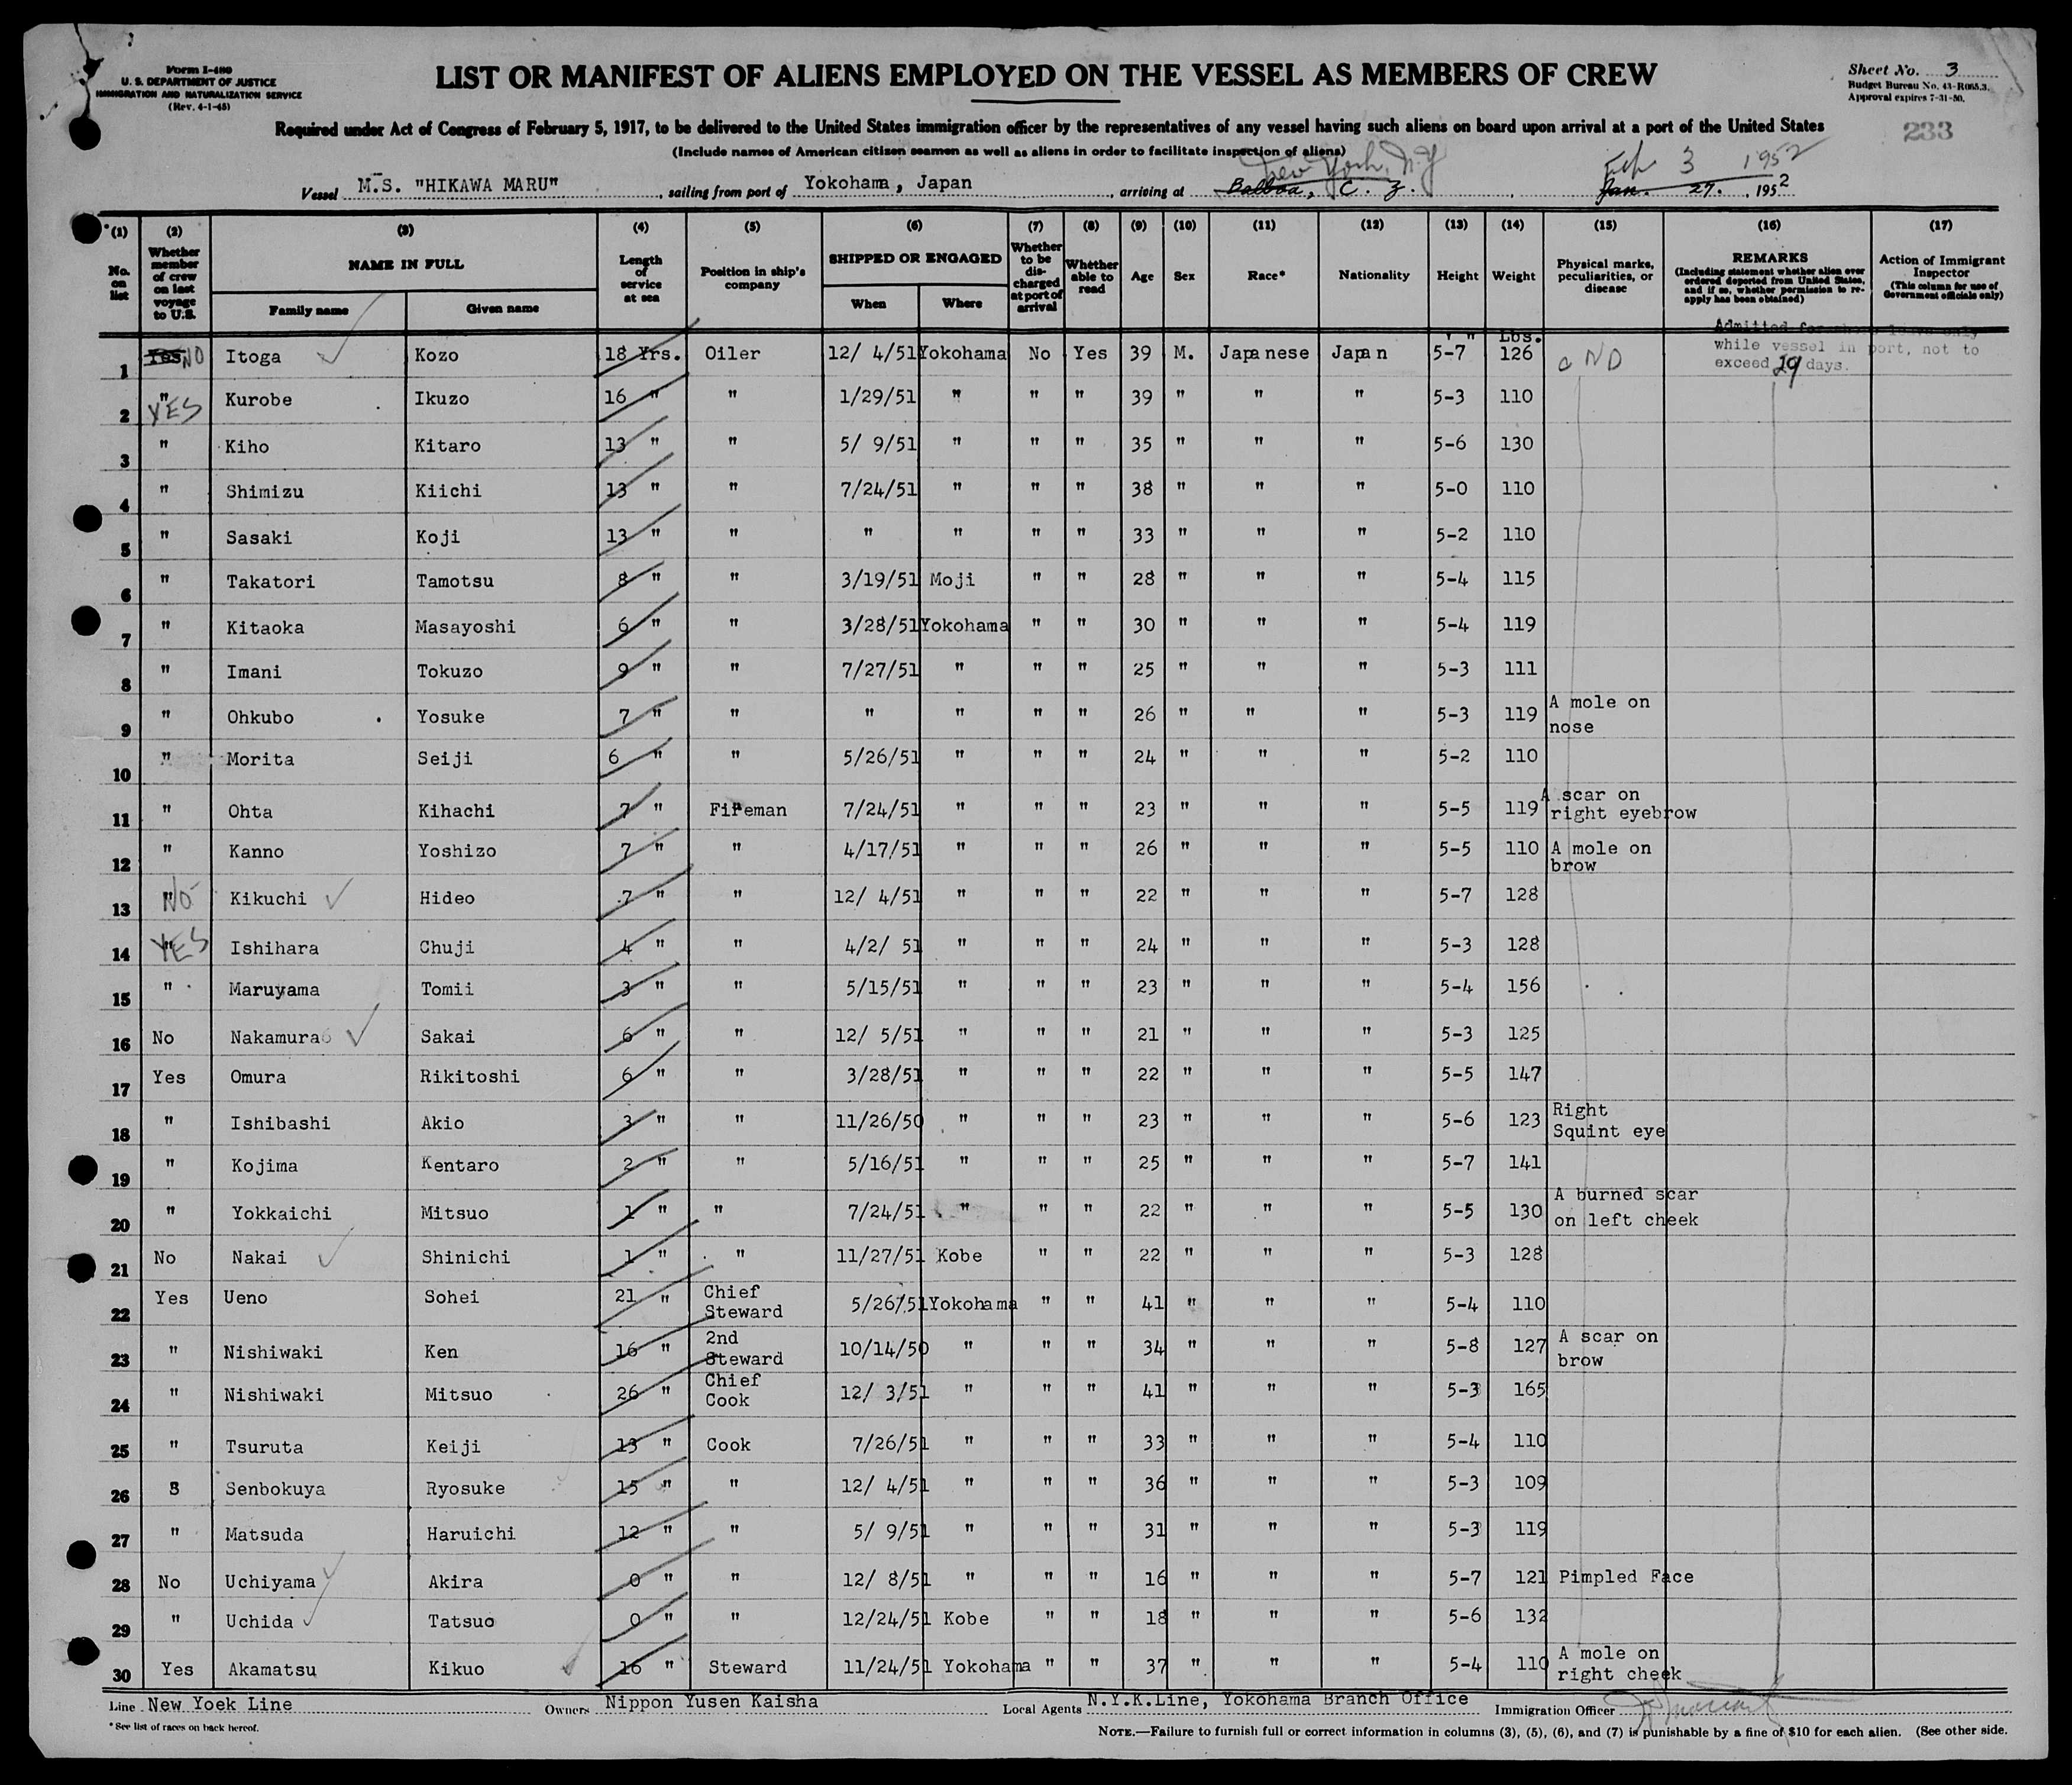 Form I-480
U. S. DEPARTMENT OF JUSTICE
IMMIGRATION AND NATURALIZATION SERVICE
(Rev. 4-1-45)
LIST OR MANIFEST OF ALIENS EMPLOYED ON THE VESSEL AS MEMBERS OF CREW
Sheet No. 3
Budget Bureau No. 43-R065.3.
Approval expires 7-31-50.
Required under Act of Congress of February 5, 1917, to be delivered to the United States immigration officer by the representatives of any vessel having such aliens on board upon arrival at a port of the United States
233
(Include names of American citizen seamen as well as aliens in order to facilitate inspection of aliens)
New York, N.Y Feb 3 1952
Vessel M.S. "HIKAWA MARU" , sailing from port of Yokohama, Japan , arriving at Balboa, C. Z. , Jan. 27. , 1952
(1) (2) (3) (4) (5) (6) (7) (8) (9) (10) (11) (12) (13) (14) (15) (16) (17)
No. on list
Whether member of crew on last voyage to U.S.
NAME IN FULL
Family name Given name
Length of service at sea
Position in ship's company
SHIPPED OR ENGAGED
When Where
Whether to be discharged at port of arrival
Whether able to read
Age
Sex
Race*
Nationality
Height
Weight
Physical marks, peculiarities, or disease
REMARKS
(Including statement whether alien ever ordered deported from United States, and if so, whether permission to reapply has been obtained)
Action of Immigrant Inspector
(This column for use of Government officials only)
Admitted for shore leave only
while vessel in port, not to
exceed 29 days.
Lbs.
1 Yes NO Itoga Kozo 18 Yrs. Oiler 12/ 4/51 Yokohama No Yes 39 M. Japanese Japan 5-7 126
2 " YES Kurobe Ikuzo 16 " " 1/29/51 " " " 39 " " " 5-3 110
3 " Kiho Kitaro 13 " " 5/ 9/51 " " " 35 " " " 5-6 130
4 " Shimizu Kiichi 13 " " 7/24/51 " " " 38 " " " 5-0 110
5 " Sasaki Koji 13 " " " " " " 33 " " " 5-2 110
6 " Takatori Tamotsu 8 " " 3/19/51 Moji " " 28 " " " 5-4 115
7 " Kitaoka Masayoshi 6 " " 3/28/51 Yokohama " " 30 " " " 5-4 119
8 " Imani Tokuzo 9 " " 7/27/51 " " " 25 " " " 5-3 111
9 " Ohkubo Yosuke 7 " " " " " " 26 " " " 5-3 119 A mole on nose
10 " Morita Seiji 6 " " 5/26/51 " " " 24 " " " 5-2 110
11 " Ohta Kihachi 7 " Fireman 7/24/51 " " " 23 " " " 5-5 119 A scar on right eyebrow
12 " Kanno Yoshizo 7 " " 4/17/51 " " " 26 " " " 5-5 110 A mole on brow
13 " No Kikuchi Hideo 7 " " 12/ 4/51 " " " 22 " " " 5-7 128
14 " YES Ishihara Chuji 4 " " 4/2/ 51 " " " 24 " " " 5-3 128
15 " Maruyama Tomii 3 " " 5/15/51 " " " 23 " " " 5-4 156
16 No Nakamura Sakai 6 " " 12/ 5/51 " " " 21 " " " 5-3 125
17 Yes Omura Rikitoshi 6 " " 3/28/51 " " " 22 " " " 5-5 147
18 " Ishibashi Akio 3 " " 11/26/50 " " " 23 " " " 5-6 123 Right Squint eye
19 " Kojima Kentaro 2 " " 5/16/51 " " " 25 " " " 5-7 141
20 " Yokkaichi Mitsuo 1 " " 7/24/51 " " " 22 " " " 5-5 130 A burned scar on left cheek
21 No Nakai Shinichi 1 " " 11/27/51 Kobe " " 22 " " " 5-3 128
22 Yes Ueno Sohei 21 " Chief Steward 5/26/51 Yokohama " " 41 " " " 5-4 110
23 " Nishiwaki Ken 16 " 2nd Steward 10/14/50 " " " 34 " " " 5-8 127 A scar on brow
24 " Nishiwaki Mitsuo 26 " Chief Cook 12/ 3/51 " " " 41 " " " 5-3 165
25 " Tsuruta Keiji 13 " Cook 7/26/51 " " " 33 " " " 5-4 110
26 Senbokuya Ryosuke 15 " " 12/ 4/51 " " " 36 " " " 5-3 109
27 " Matsuda Haruichi 12 " " 5/ 9/51 " " " 31 " " " 5-3 119
28 No Uchiyama Akira 0 " " 12/ 8/51 " " " 16 " " " 5-7 121 Pimpled Face
29 " Uchida Tatsuo 0 " " 12/24/51 Kobe " " 18 " " " 5-6 132
30 Yes Akamatsu Kikuo 16 " Steward 11/24/51 Yokohama " " 37 " " " 5-4 110 A mole on right cheek
Line New Yoek Line Owners Nippon Yusen Kaisha Local Agents N.Y.K.Line, Yokohama Branch Office Immigration Officer
*See list of races on back hereof.
NOTE.—Failure to furnish full or correct information in columns (3), (5), (6), and (7) is punishable by a fine of $10 for each alien. (See other side.